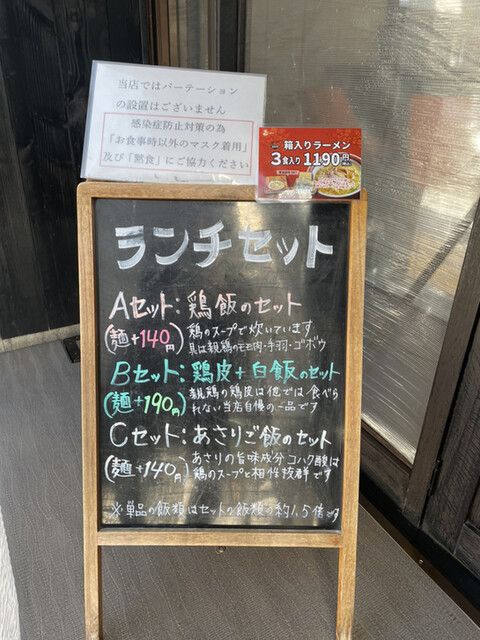 当店ではパーテーション
の設置はございません
感染症防止対策の為
「お食事時以外のマスク着用」
及び「黙食」にご協力ください
箱入りラーメン
3食入り 1190円
ランチセット
Aセット:鶏飯のセット
(麺+140円)
鶏のスープで炊いています
具は親鶏のモモ肉・手羽・ゴボウ
Bセット:鶏皮+白飯のセット
(麺+190円)
親鶏の鶏皮は他では食べら
れない当店自慢の一品です
Cセット:あさりご飯のセット
(麺+140円)
あさりの旨味成分コハク酸は
鶏のスープと相性抜群です
※単品の飯類はセットの飯類の約1.5倍です